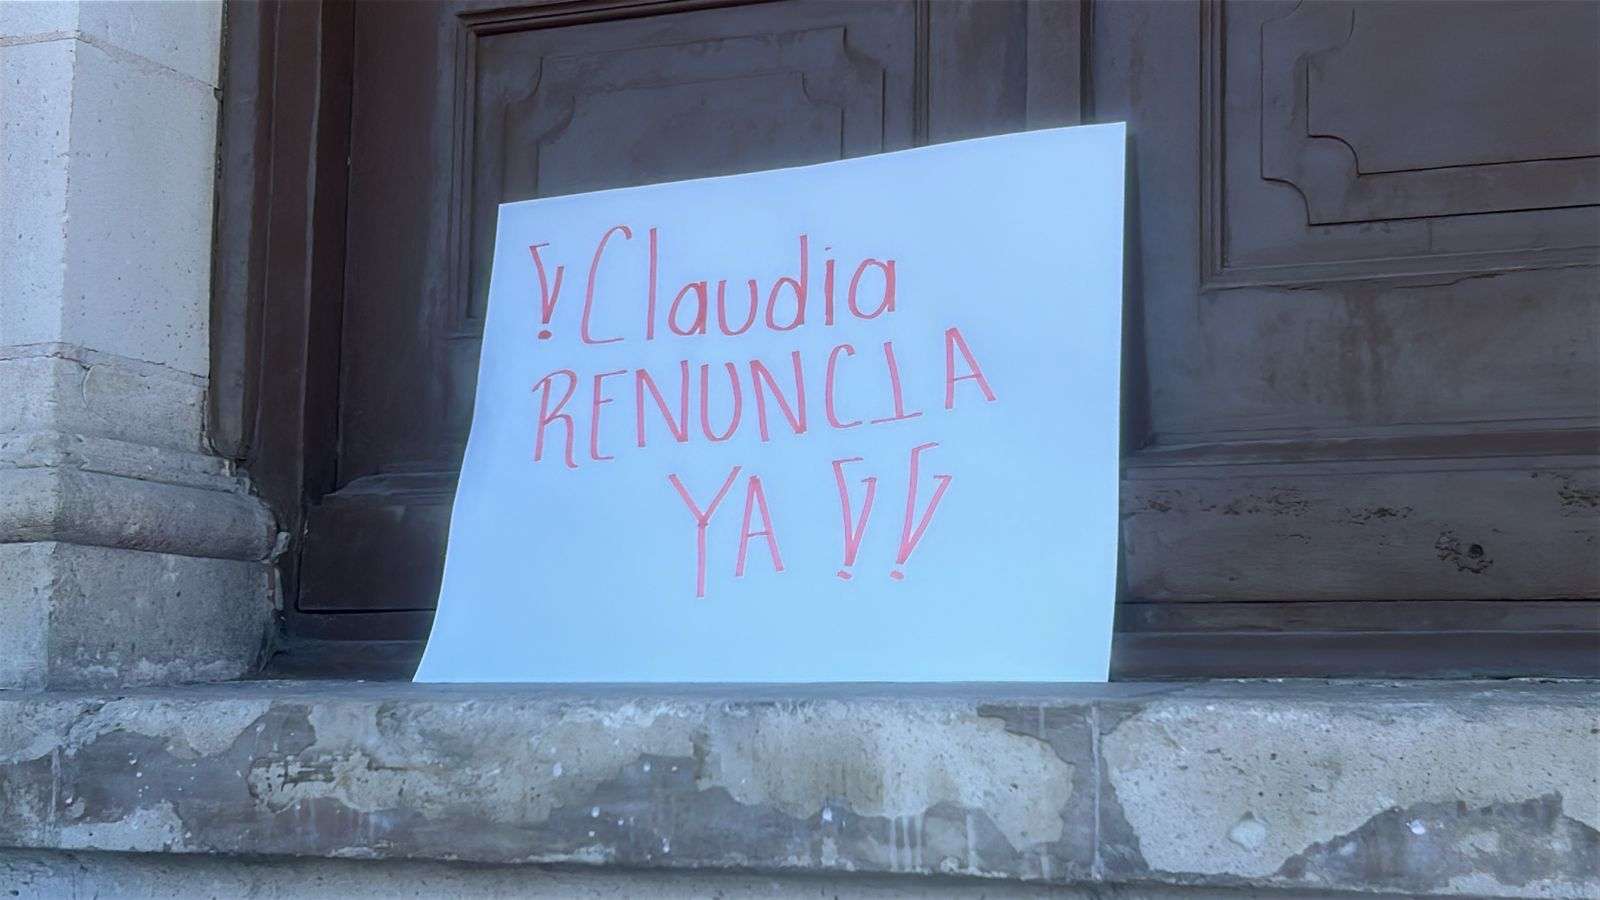 !Claudia
RENUNCIA
YA !!